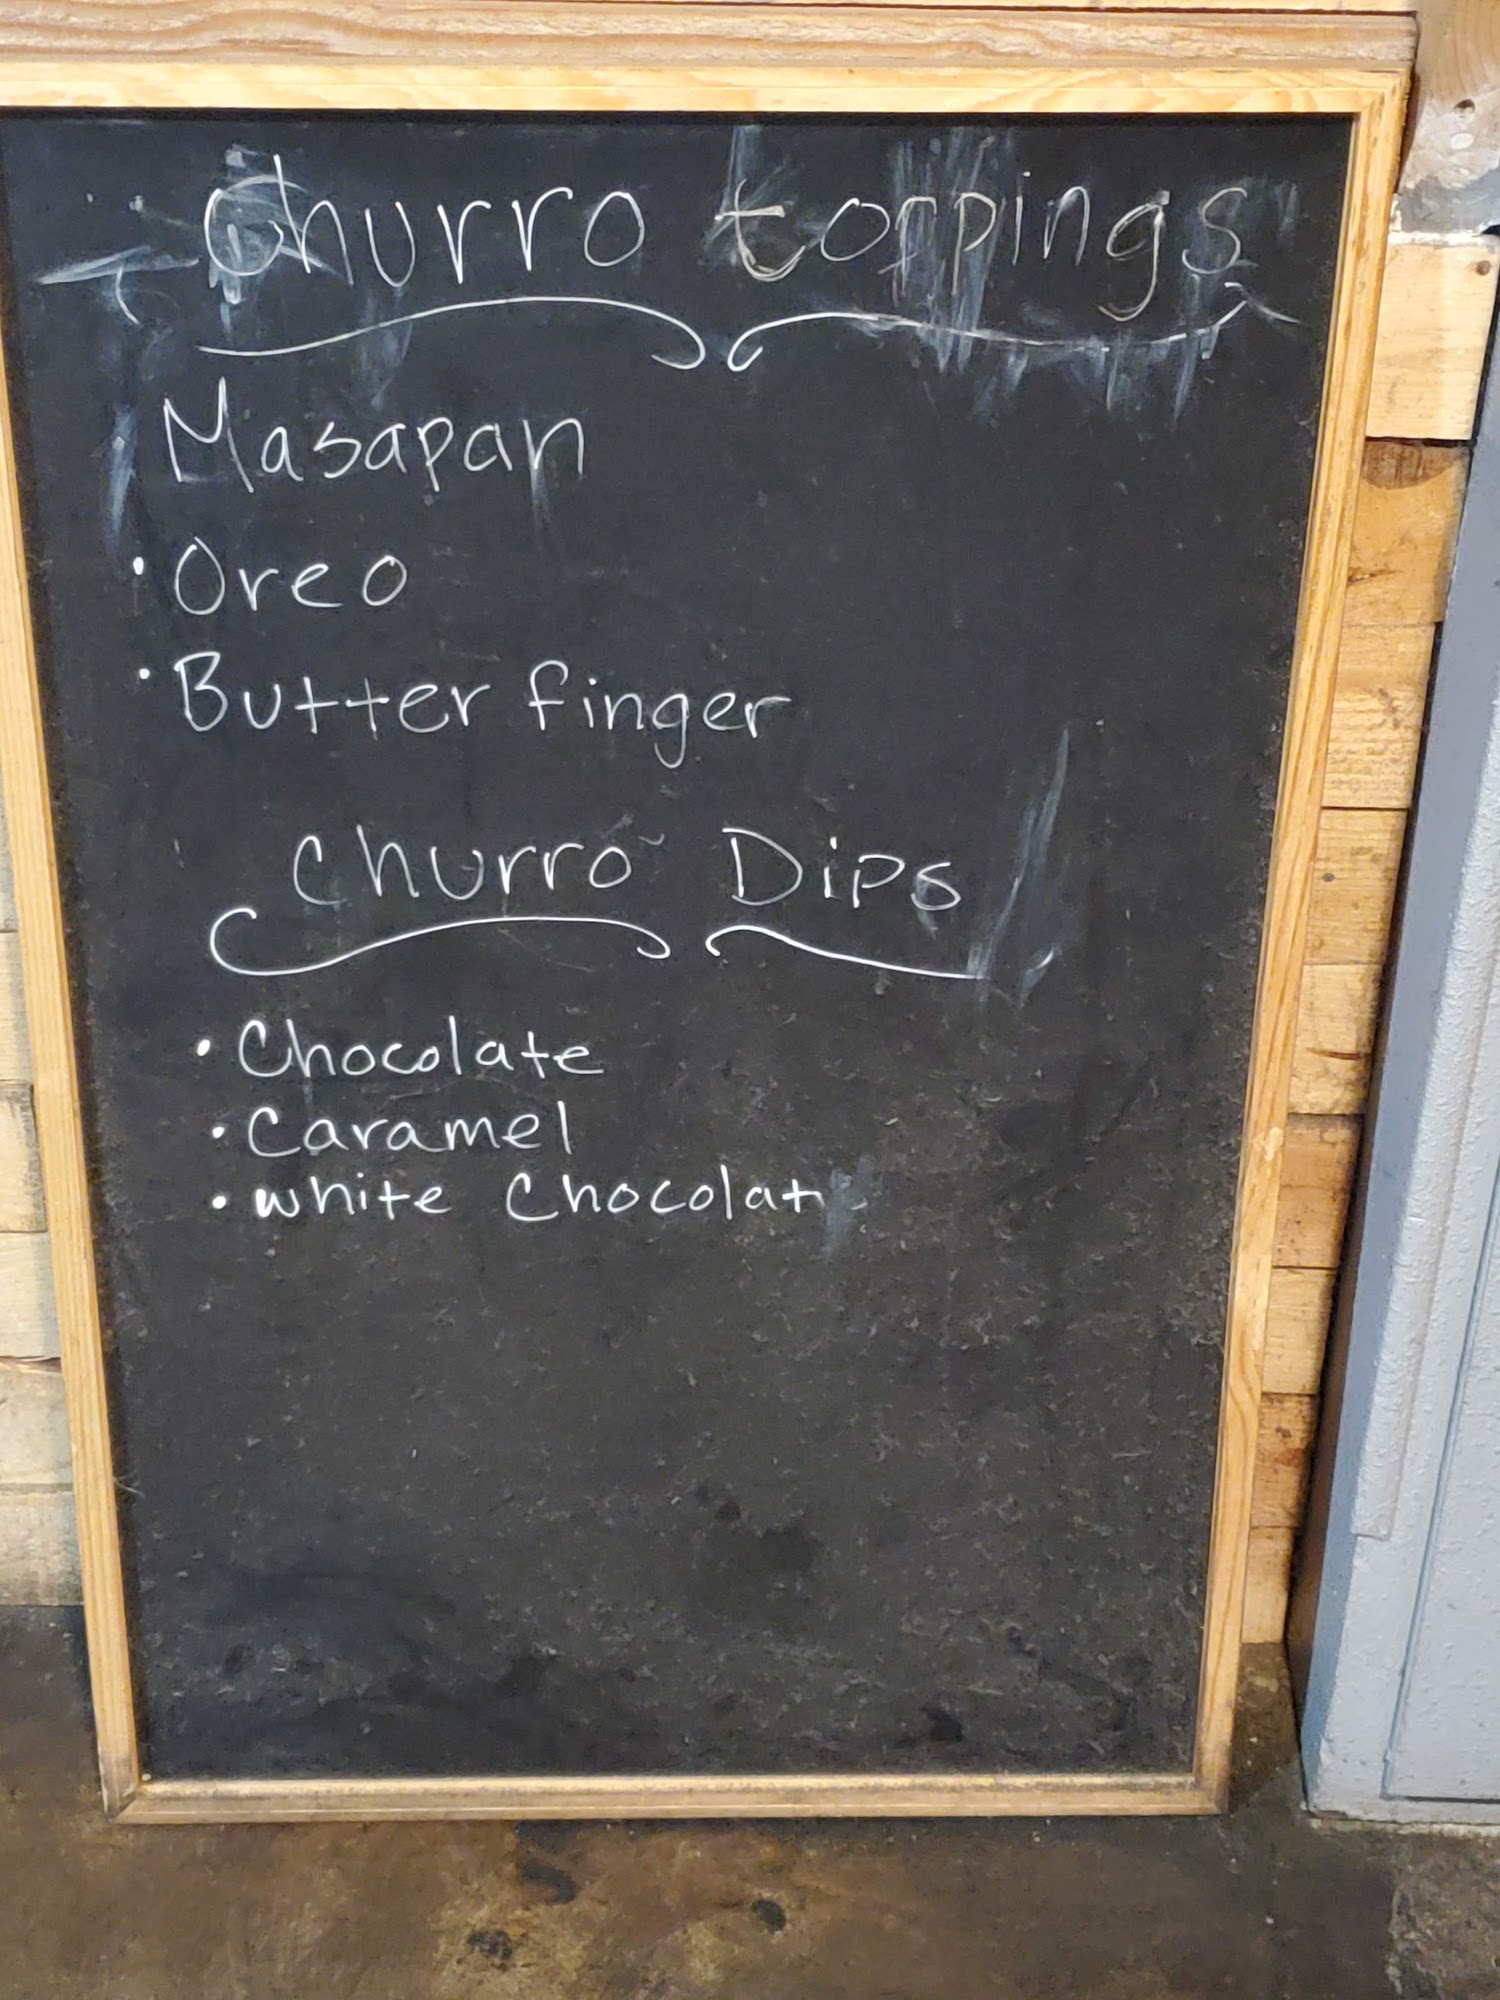 Churro toppings
Masapan
• Oreo
• Butter finger
Churro Dips
• Chocolate
• Caramel
• white Chocolat